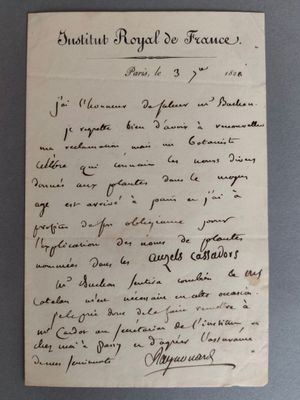 Institut Royal de France.
Paris, le 3 7bre 182
j'ai l'honneur de saluer mr Buchon.
je regrette bien d'avoir à renouveller
ma reclamation mais un botaniste
célèbre qui connait les noms divers
donnés aux plantes dans le moyen
age est arrivé à paris et j'ai à
profiter de son obligeance pour
l'explication des noms de plantes
nommées dans les auzels cassadors
Mr Buchon sentira combien le
Catalan m'est nécessaire en cette occasion.
je le prie donc de le faire remettre à
mr Cardot au secretariat de l'institut, ou
chez moi à passy et d'agréer l'assurance
de mes sentiments
Raynouard